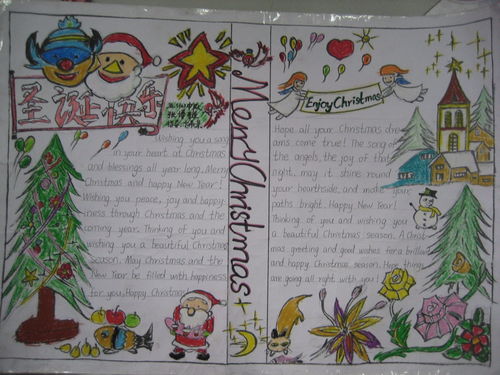 圣诞快乐
Wishing you a song
in your heart at Christmas
and blessings all year long. Merry
Christmas and happy New Year!
Wishing you peace, joy and happy-
iness through Christmas and the
coming year. Thinking of you and
wishing you a beautiful Christmas
Season. May Christmas and the
New Year be filled with happiness
for you. Happy Christmas!
Merry Christmas
Enjoy Christmas
Hope all your Christmas dre-
ams come true! The song of
the angels, the joy of that
night, may it shine round
your hearthside, and make your
paths bright. Happy New Year!
Thinking of you and wishing you
a beautiful Christmas season. A Christ-
mas greeting and good wishes for a brilliant
and happy Christmas season. Hope things
are going all right with you!